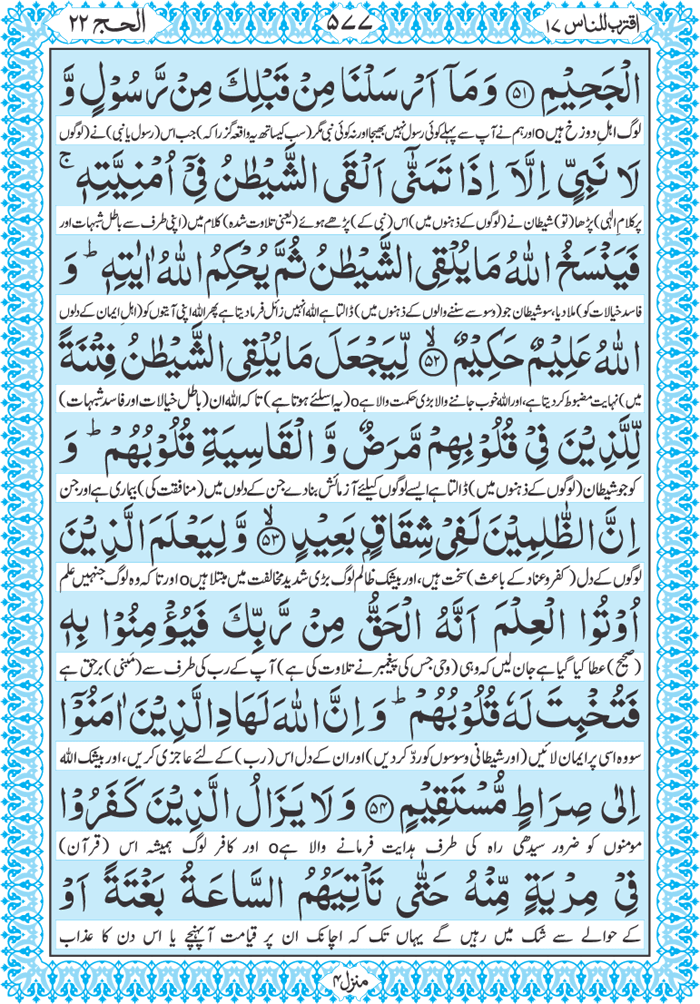 اقترب للناس ١٧
٥٧٧
الحج ٢٢
الْجَحِيْمِ ﴿٥١﴾ وَمَاۤ اَرْسَلْنَا مِنْ قَبْلِكَ مِنْ رَّسُوْلٍ وَّ
لوگ اہلِ دوزخ ہیں o اور ہم نے آپ سے پہلے کوئی رسول نہیں بھیجا اور نہ کوئی نبی مگر (سب کیساتھ یہ واقعہ گزرا کہ) جب اس (رسول یا نبی) نے (لوگوں
لَا نَبِيٍّ اِلَّاۤ اِذَا تَمَنّٰۤى اَلْقَى الشَّيْطٰنُ فِيْۤ اُمْنِيَّتِهٖ ۚ
پر کلامِ الٰہی) پڑھا (تو) شیطان نے (لوگوں کے ذہنوں میں) اس (نبی کے) پڑھے ہوئے (یعنی تلاوت شدہ) کلام میں (اپنی طرف سے باطل شبہات اور
فَيَنْسَخُ اللّٰهُ مَا يُلْقِى الشَّيْطٰنُ ثُمَّ يُحْكِمُ اللّٰهُ اٰيٰتِهٖ ؕ وَ
فاسد خیالات کو) ملا دیا، سو شیطان جو (وسوسے سننے والوں کے ذہنوں میں) ڈالتا ہے اللہ انہیں زائل فرما دیتا ہے پھر اللہ اپنی آیتوں کو (اہلِ ایمان کے دلوں
اللّٰهُ عَلِيْمٌ حَكِيْمٌ ۙ﴿٥٢﴾ لِّيَجْعَلَ مَا يُلْقِى الشَّيْطٰنُ فِتْنَةً
میں) نہایت مضبوط کر دیتا ہے، اور اللہ خوب جاننے والا بڑی حکمت والا ہے o (یہ اسلئے ہوتا ہے) تاکہ اللہ ان (باطل خیالات اور فاسد شبہات)
لِّلَّذِيْنَ فِيْ قُلُوْبِهِمْ مَّرَضٌ وَّ الْقَاسِيَةِ قُلُوْبُهُمْ ؕ وَ
کو جو شیطان (لوگوں کے ذہنوں میں) ڈالتا ہے ایسے لوگوں کیلئے آزمائش بنا دے جن کے دلوں میں (منافقت کی) بیماری ہے اور جن
اِنَّ الظّٰلِمِيْنَ لَفِيْ شِقَاقٍۭ بَعِيْدٍ ۙ﴿٥٣﴾ وَّ لِيَعْلَمَ الَّذِيْنَ
لوگوں کے دل (کفر و عناد کے باعث) سخت ہیں، اور بیشک ظالم لوگ بڑی شدید مخالفت میں مبتلا ہیں o اور تاکہ وہ لوگ جنہیں علم
اُوْتُوا الْعِلْمَ اَنَّهُ الْحَقُّ مِنْ رَّبِّكَ فَيُؤْمِنُوْا بِهٖ
(صحیح) عطا کیا گیا ہے جان لیں کہ وہی (وحی جس کی پیغمبر نے تلاوت کی ہے) آپ کے رب کی طرف سے (مَبنی) برحق ہے
فَتُخْبِتَ لَهٗ قُلُوْبُهُمْ ؕ وَ اِنَّ اللّٰهَ لَهَادِ الَّذِيْنَ اٰمَنُوْۤا
سو وہ اسی پر ایمان لائیں (اور شیطانی وسوسوں کو ردّ کر دیں) اور ان کے دل اس (رب) کے لئے عاجزی کریں، اور بیشک اللہ
اِلٰى صِرَاطٍ مُّسْتَقِيْمٍ ﴿٥٤﴾ وَ لَا يَزَالُ الَّذِيْنَ كَفَرُوْا
مومنوں کو ضرور سیدھی راہ کی طرف ہدایت فرمانے والا ہے o اور کافر لوگ ہمیشہ اس (قرآن)
فِيْ مِرْيَةٍ مِّنْهُ حَتّٰى تَاْتِيَهُمُ السَّاعَةُ بَغْتَةً اَوْ
کے حوالے سے شک میں رہیں گے یہاں تک کہ اچانک ان پر قیامت آپہنچے یا اس دن کا عذاب
منزل ۴